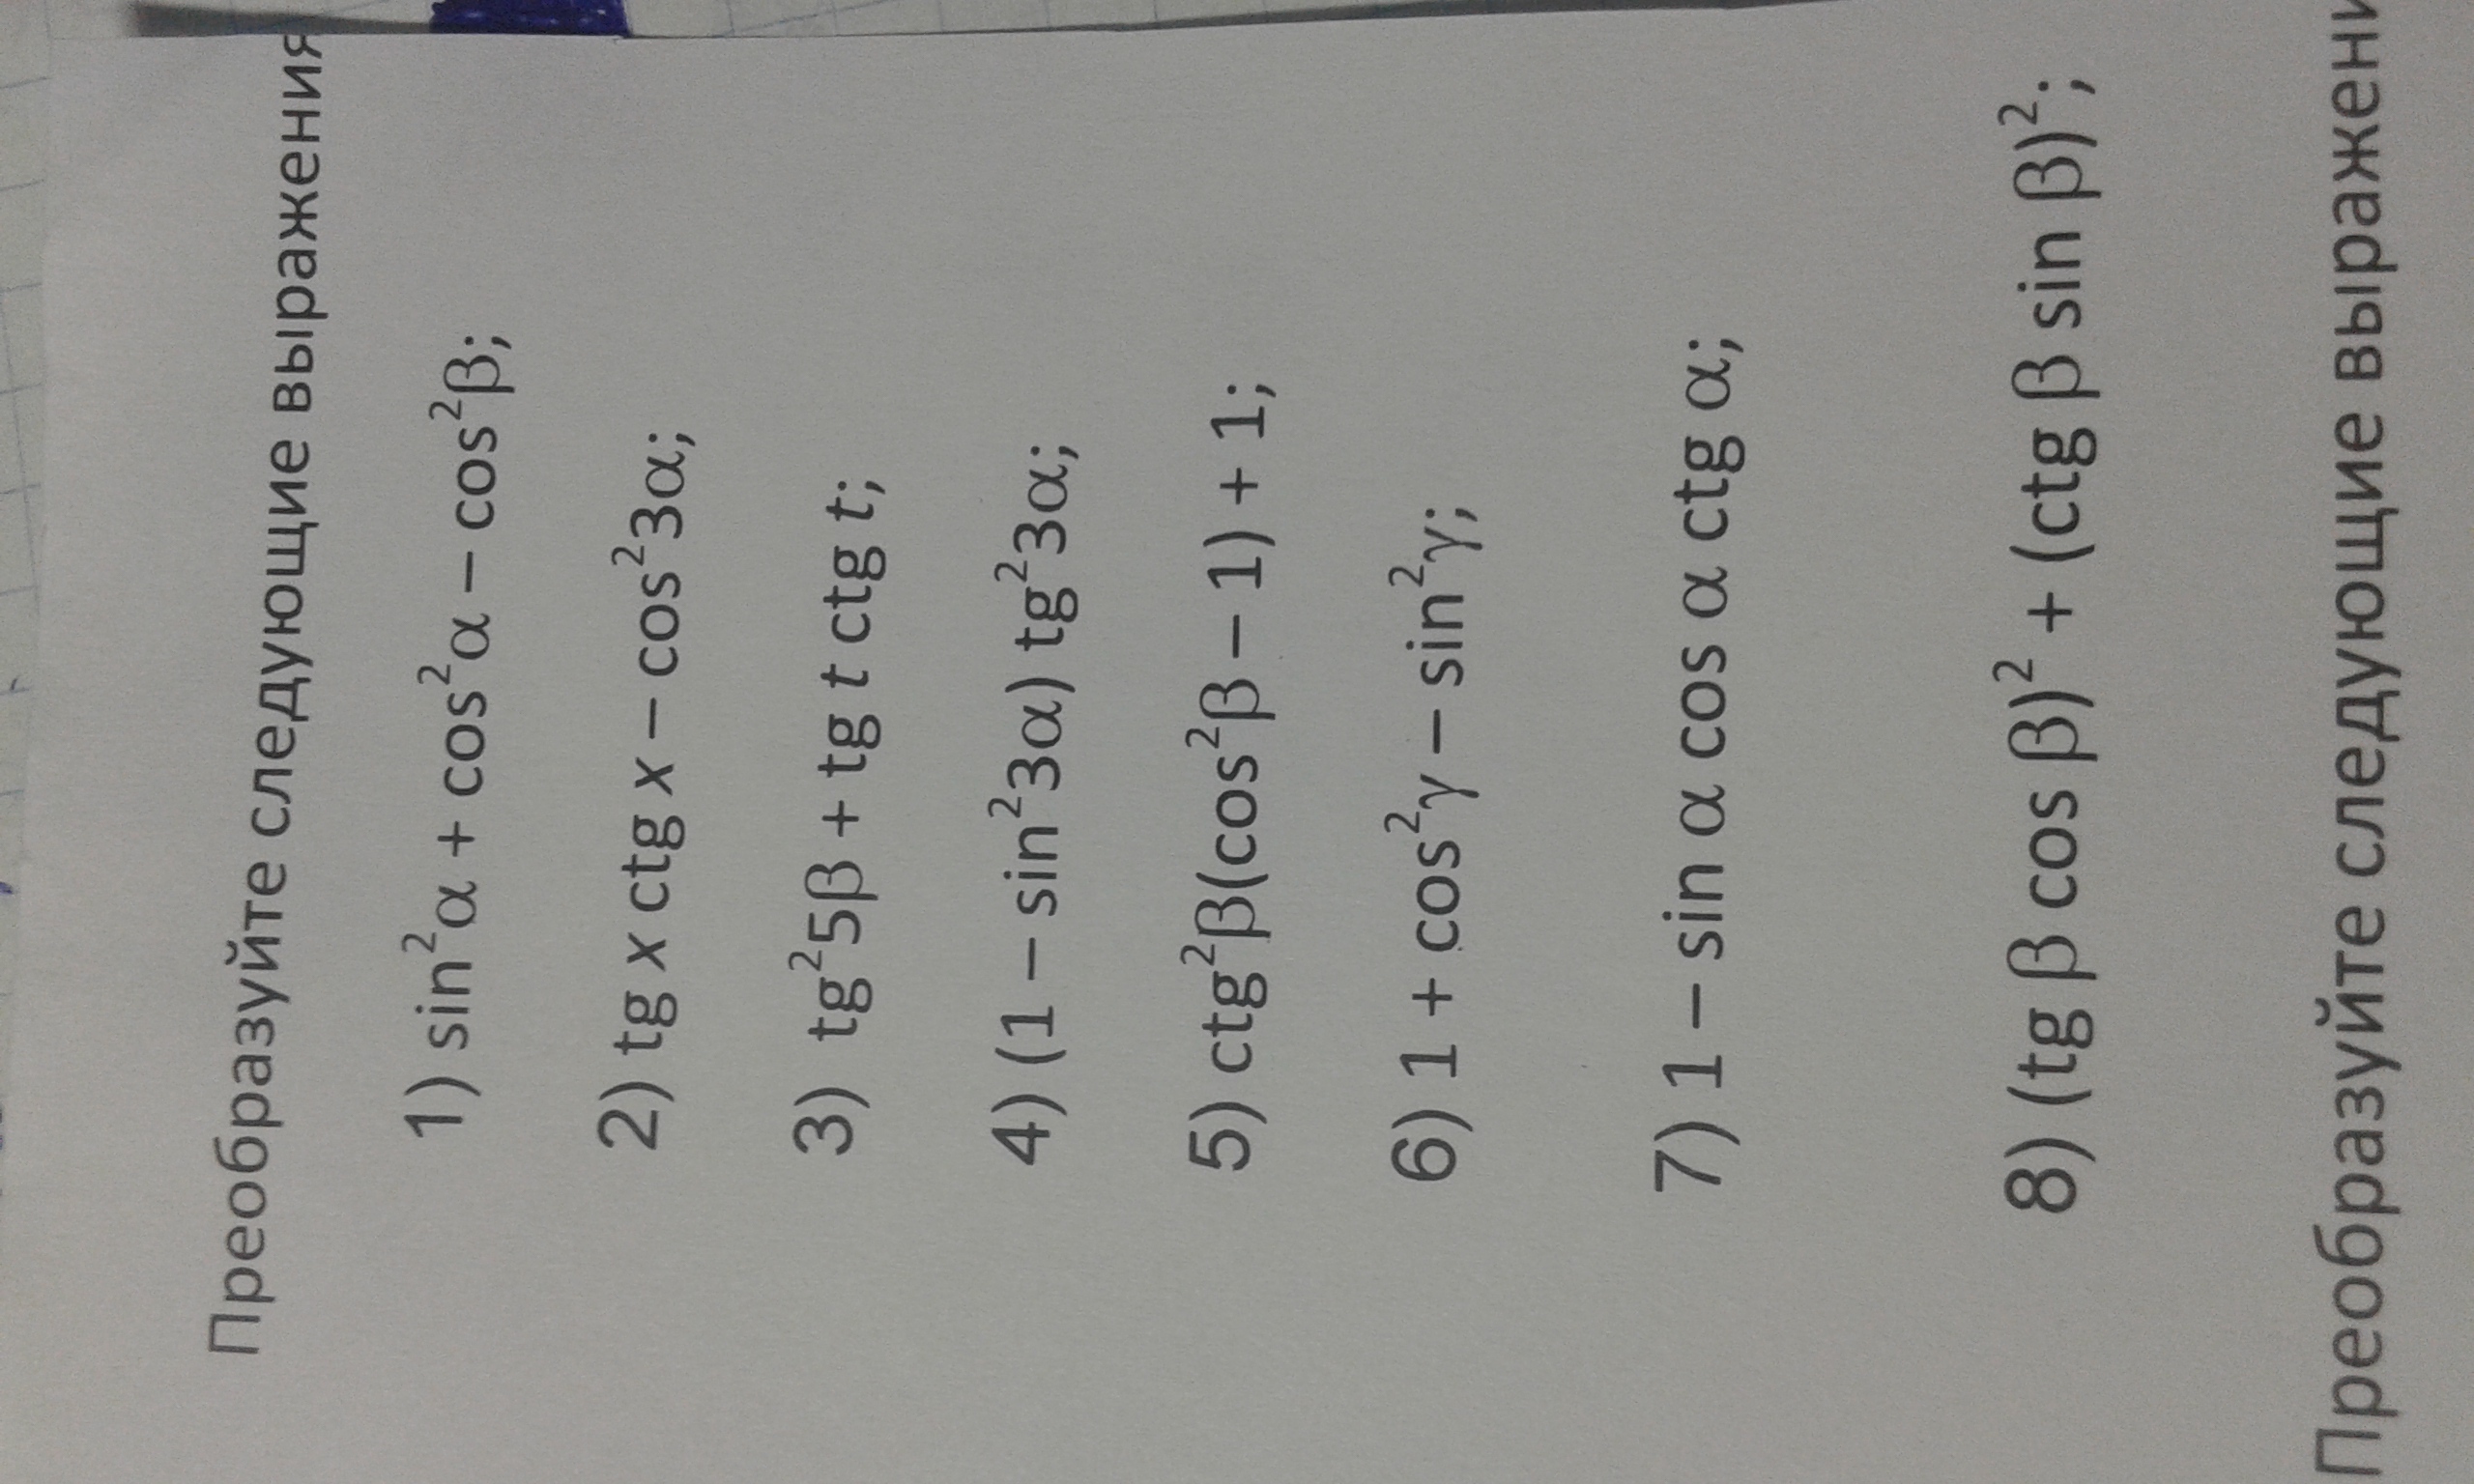 Преобразуйте следующие выражения
1) sin²α + cos²α – cos²β;
2) tg x ctg x – cos²3α;
3) tg²5β + tg t ctg t;
4) (1 – sin²3α) tg²3α;
5) ctg²β(cos²β – 1) + 1;
6) 1 + cos²γ – sin²γ;
7) 1 – sin α cos α ctg α;
8) (tg β cos β)² + (ctg β sin β)²;
Преобразуйте следующие выражени